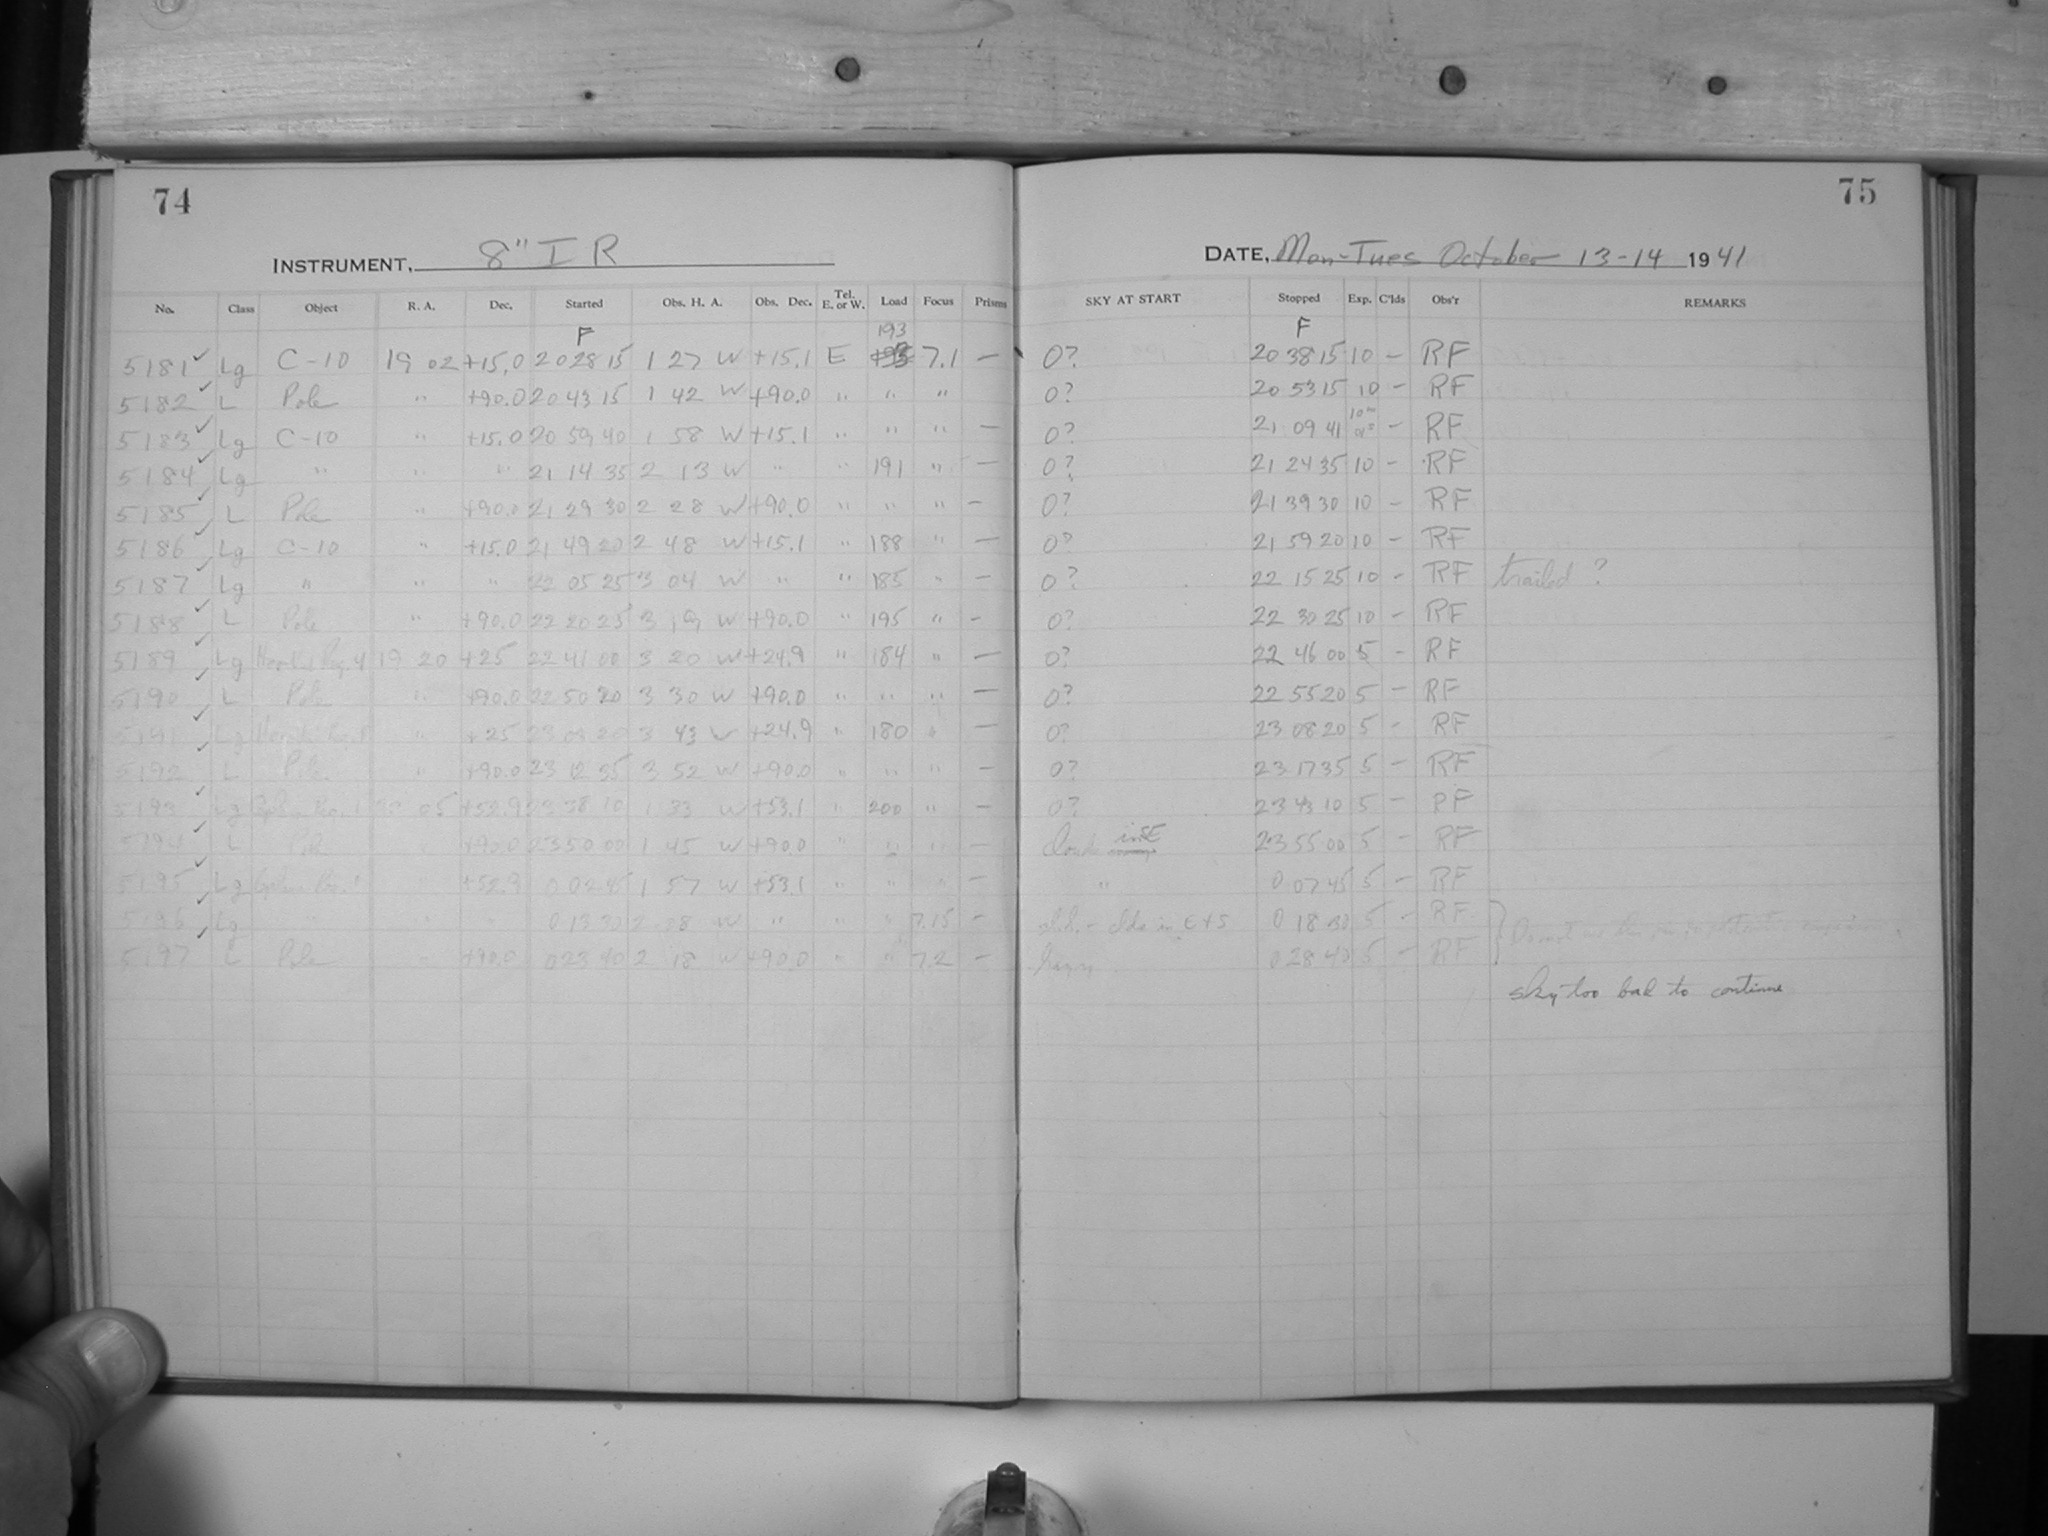 74
INSTRUMENT, 8" I R
No. Class Object R. A. Dec. Started Obs. H. A. Obs. Dec. Tel. E. or W. Load Focus Prisms
F 193
5181 ✓ Lg C-10 19 02 +15.0 20 28 15 1 27 W +15.1 E 7.1 —
5182 ✓ L Pole " +90.0 20 43 15 1 42 W +90.0 " " "
5183 ✓ Lg C-10 " +15.0 20 59 40 1 58 W +15.1 " " " —
5184 ✓ Lg " " " 21 14 35 2 13 W " " 191 " —
5185 ✓ L Pole " +90.0 21 29 30 2 28 W +90.0 " " " —
5186 ✓ Lg C-10 " +15.0 21 49 20 2 48 W +15.1 " 188 " —
5187 ✓ Lg " " " 22 05 25 3 04 W " " 185 " —
5188 ✓ L Pole " +90.0 22 20 25 3 19 W +90.0 " 195 " —
5189 ✓ Lg 19 20 +25 22 41 00 3 20 W +24.9 " 184 " —
5190 ✓ L Pole " +90.0 22 50 20 3 30 W +90.0 " " " —
5191 ✓ Lg " +25 3 43 W +24.9 " 180 " —
5192 L Pole " +90.0 23 12 35 3 52 W +90.0 " " " —
5193 ✓ Lg 05 +52.9 23 38 10 1 33 W +53.1 " 200 " —
5194 ✓ L Pole +90.0 23 50 00 1 45 W +90.0 " " " —
5195 ✓ Lg " +52.9 0 02 45 1 57 W +53.1 " " " —
5196 ✓ Lg " " 0 13 30 2 08 W " " " 7.15 —
5197 ✓ L Pole " +90.0 0 23 40 2 18 W +90.0 " " 7.2 —
75
DATE, Mon-Tues October 13-14 1941
SKY AT START Stopped Exp. C'lds Obs'r REMARKS
F
0? 20 38 15 10 — RF
0? 20 53 15 10 — RF
0? 21 09 41 — RF
0? 21 24 35 10 — RF
0? 21 39 30 10 — RF
0? 21 59 20 10 — RF
0? 22 15 25 10 — RF trailed ?
0? 22 30 25 10 — RF
0? 22 46 00 5 — RF
0? 22 55 20 5 — RF
0? 23 08 20 5 — RF
0? 23 17 35 5 — RF
0? 23 43 10 5 — RF
in SE 23 55 00 5 — RF
" 0 07 45 5 — RF
in E + S 0 18 30 5 — RF
hazy 0 28 40 5 — RF
sky too bad to continue